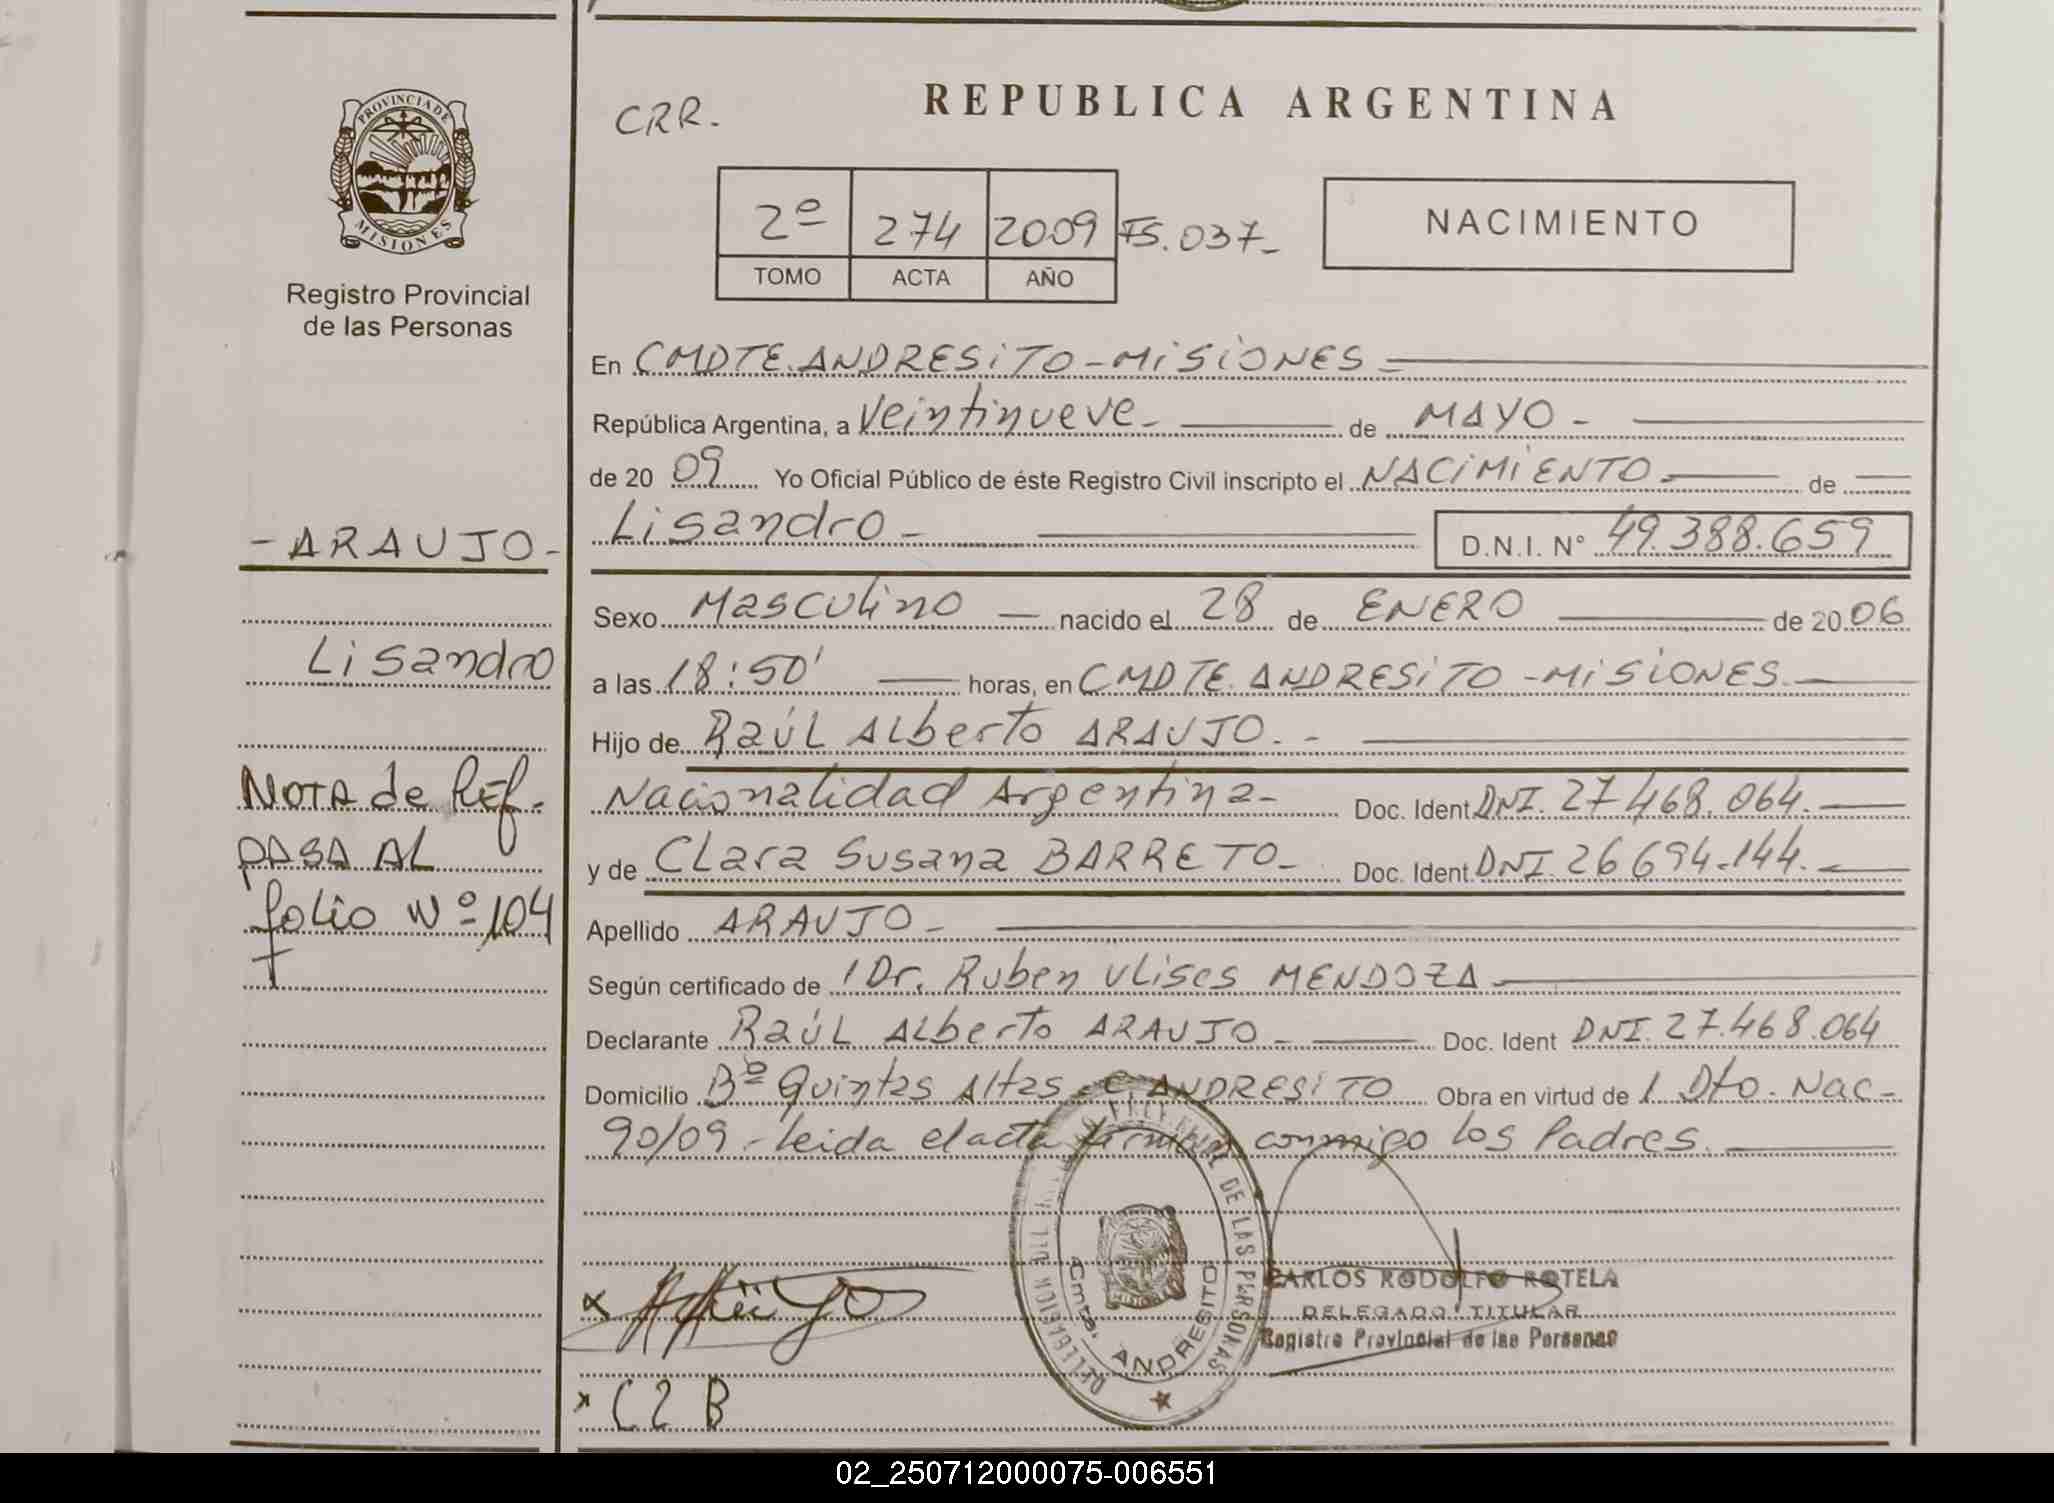 PROVINCIA DE
MISIONES
Registro Provincial
de las Personas
- ARAUJO -
Lisandro
NOTA de REF.
PASA AL
folio Nº 104
CRR.
REPUBLICA ARGENTINA
2º 274 2009 FS. 037-
TOMO ACTA AÑO
NACIMIENTO
En CMDTE. ANDRESiTO - MiSiONES -
República Argentina, a Veintinueve - de MAYO -
de 20 09 Yo Oficial Público de éste Registro Civil inscripto el NACiMiENTO de
Lisandro - D.N.I. N° 49.388.659
Sexo Masculino nacido el 28 de ENERO de 20 06
a las 18:50' horas, en CMDTE. ANDRESiTO - MiSiONES.
Hijo de Raúl Alberto ARAUJO. -
Nacionalidad Argentina - Doc. Ident DNI. 27 468.064.
y de Clara Susana BARRETO - Doc. Ident DNI. 26 694.144.
Apellido ARAUJO -
Según certificado de / Dr. Ruben Ulises MENDOZA
Declarante Raúl Alberto ARAUJO - Doc. Ident DNI. 27.468.064
Domicilio Bº Quintas Altas - C. ANDRESiTO Obra en virtud de / Dto. Nac -
90/09 - leida el acta firman conmigo los Padres.
DE LAS PERSONAS
Cmte. ANDRESITO
CARLOS RODOLFO ROTELA
DELEGADO TITULAR
Registro Provincial de las Personas
x C2 B
02_250712000075-006551